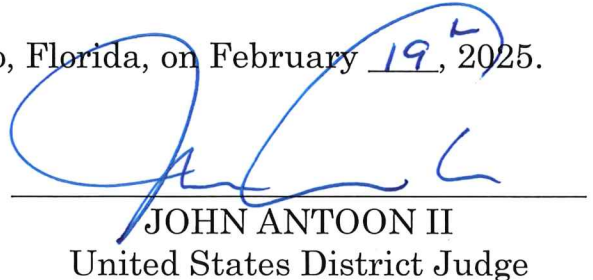 o, Florida, on February 19, 2025.
JOHN ANTOON II
United States District Judge